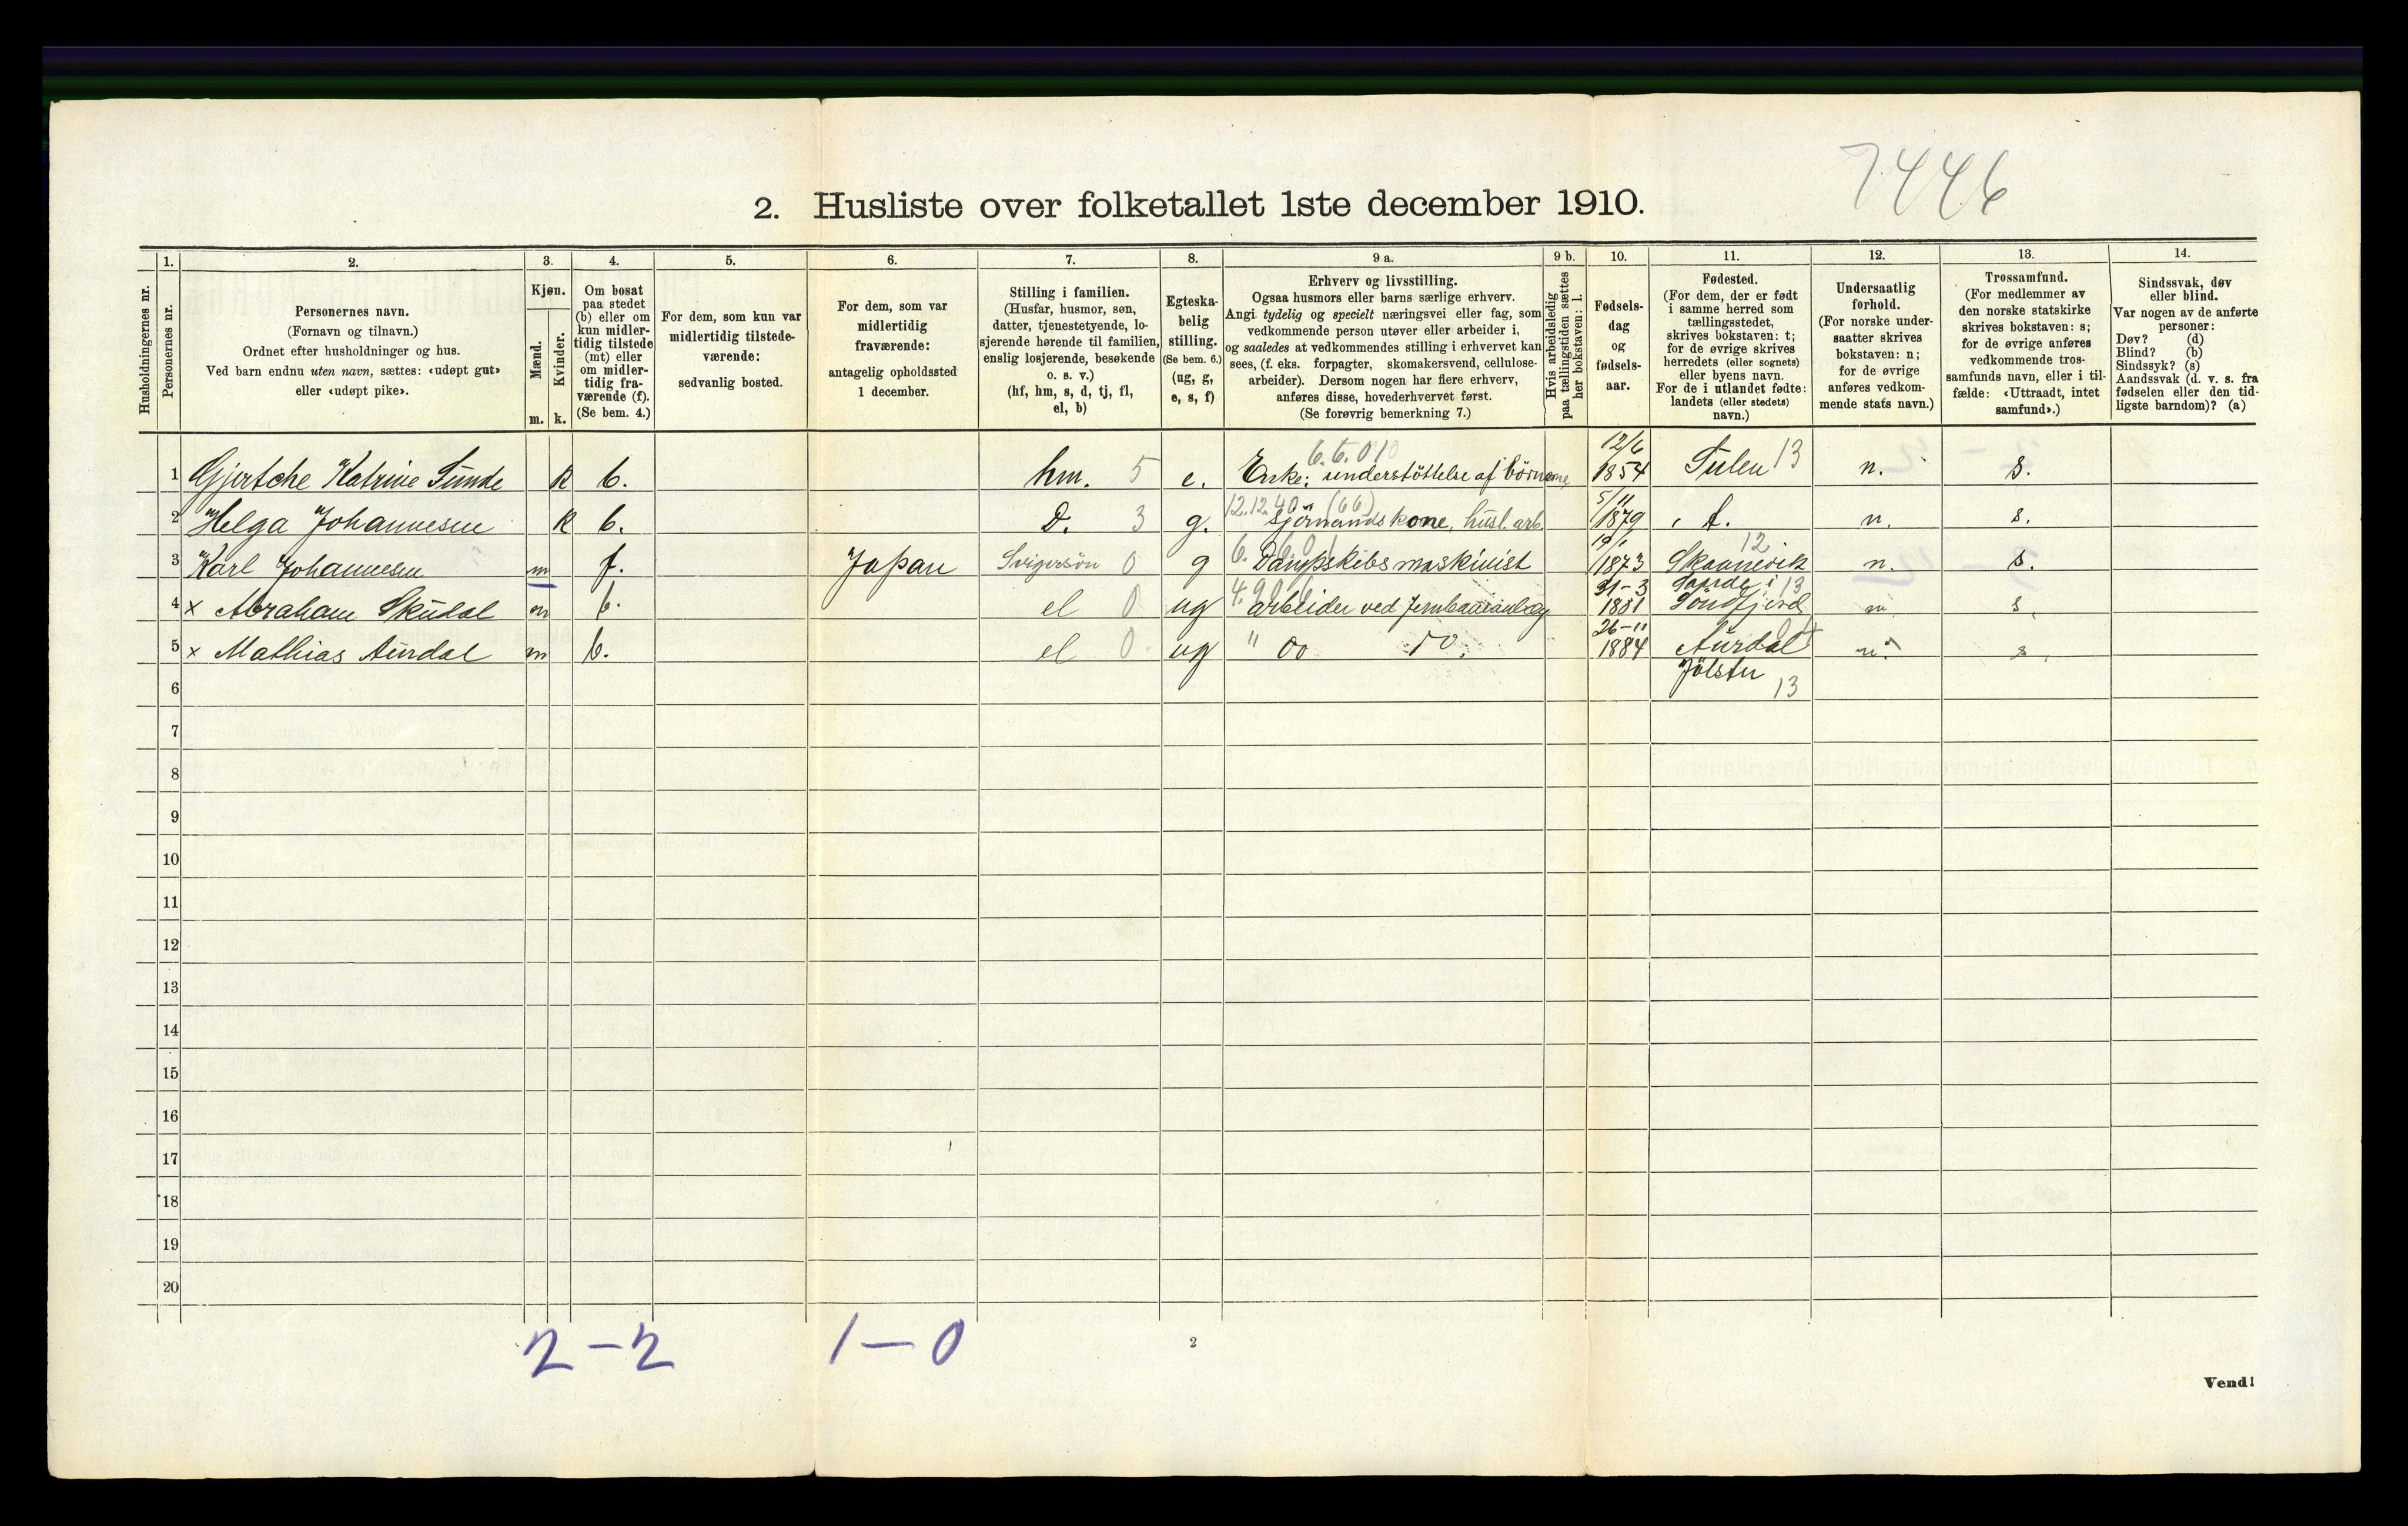 7446
2. Husliste over folketallet 1ste december 1910.
Husholdningernes nr.
1.
Personernes nr.
2.
Personernes navn.
(Fornavn og tilnavn.)
Ordnet efter husholdninger og hus.
Ved barn endnu uten navn, sættes: «udøpt gut»
eller «udøpt pike».
3.
Kjøn.
Mænd.
m.
Kvinder.
k.
4.
Om bosat
paa stedet
(b) eller om
kun midler-
tidig tilstede
(mt) eller
om midler-
tidig fra-
værende (f).
(Se bem. 4.)
5.
For dem, som kun var
midlertidig tilstede-
værende:
sedvanlig bosted.
6.
For dem, som var
midlertidig
fraværende:
antagelig opholdssted
1 december.
7.
Stilling i familien.
(Husfar, husmor, søn,
datter, tjenestetyende, lo-
sjerende hørende til familien,
enslig losjerende, besøkende
o. s. v.)
(hf, hm, s, d, tj, fl,
el, b)
8.
Egteska-
belig
stilling.
(Se bem. 6.)
(ug, g,
e, s, f)
9 a.
Erhverv og livsstilling.
Ogsaa husmors eller barns særlige erhverv.
Angi tydelig og specielt næringsvei eller fag, som
vedkommende person utøver eller arbeider i,
og saaledes at vedkommendes stilling i erhvervet kan
sees, (f. eks. forpagter, skomakersvend, cellulose-
arbeider). Dersom nogen har flere erhverv,
anføres disse, hovederhvervet først.
(Se forøvrig bemerkning 7.)
9 b.
Hvis arbeidsledig
paa tællingstiden sættes
her bokstaven: l.
10.
Fødsels-
dag
og
fødsels-
aar.
11.
Fødested.
(For dem, der er født
i samme herred som
tællingsstedet,
skrives bokstaven: t;
for de øvrige skrives
herredets (eller sognets)
eller byens navn.
For de i utlandet fødte:
landets (eller stedets)
navn.)
12.
Undersaatlig
forhold.
(For norske under-
saatter skrives
bokstaven: n;
for de øvrige
anføres vedkom-
mende stats navn.)
13.
Trossamfund.
(For medlemmer av
den norske statskirke
skrives bokstaven: s;
for de øvrige anføres
vedkommende tros-
samfunds navn, eller i til-
fælde: «Uttraadt, intet
samfund».)
14.
Sindssvak, døv
eller blind.
Var nogen av de anførte
personer:
Døv? (d)
Blind? (b)
Sindssyk? (s)
Aandssvak (d. v. s. fra
fødselen eller den tid-
ligste barndom)? (a)
6.6.010 12/6
1 Gjertche Katrine Sunde k b. hm. 5 e. Enke: understöttelse af börnene 1854 13 n. s.
12.12.40 (66) 5/11
2 Helga Johannesen k b. D. 3 g. Sjömandskone, husl. arb. 1879 t. n. s.
12
3 Karl Johannesen m f. Japan Svigersön 0 g Dampskibsmaskinist 1873 Skaanevik n. s.
31-3 i 13
4 x Abraham Skudal m b. el 0 ug arbeider ved Jernbaneanlæg 1881 Söndfjord n s.
26-11
5 x Mathias Aurdal m b. el 0 ug " Do Do. 1884 Aurdal n. s.
6 Jölster 13
7
8
9
10
11
12
13
14
15
16
17
18
19
20
2-2 1-0
2
Vend!